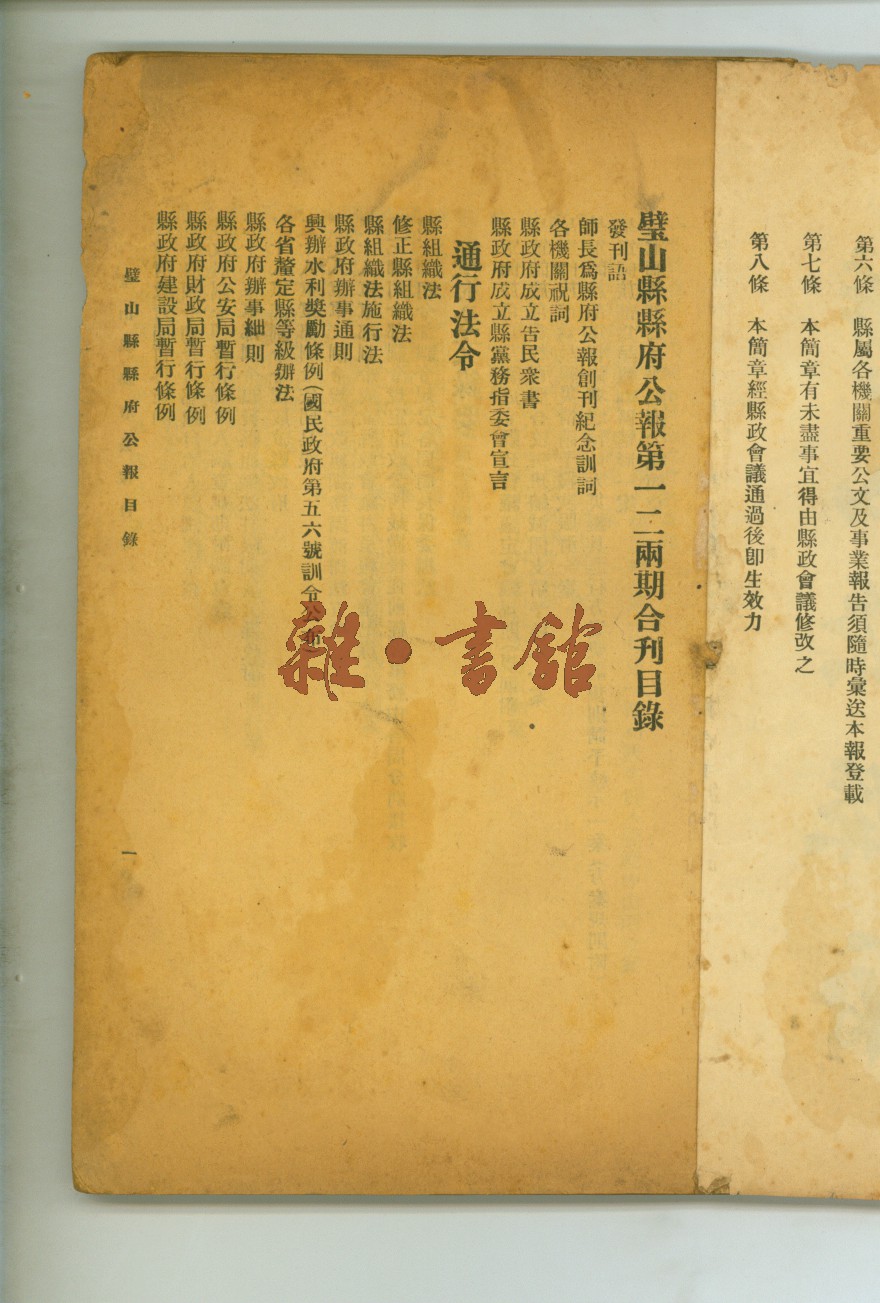 第六條　縣屬各機關重要公文及事業報告須隨時彙送本報登載
第七條　本簡章有未盡事宜得由縣政會議修改之
第八條　本簡章經縣政會議通過後卽生效力
璧山縣縣府公報第一二兩期合刊目錄
發刊語
師長爲縣府公報創刊紀念訓詞
各機關祝詞
縣政府成立告民衆書
縣政府成立縣黨務指委會宣言
通行法令
縣組織法
修正縣組織法
縣組織法施行法
縣政府辦事通則
興辦水利獎勵條例(國民政府第五六號訓令公布)
各省釐定縣等級辦法
縣政府辦事細則
縣政府公安局暫行條例
縣政府財政局暫行條例
縣政府建設局暫行條例
璧山縣縣府公報目錄
一
雜·書館